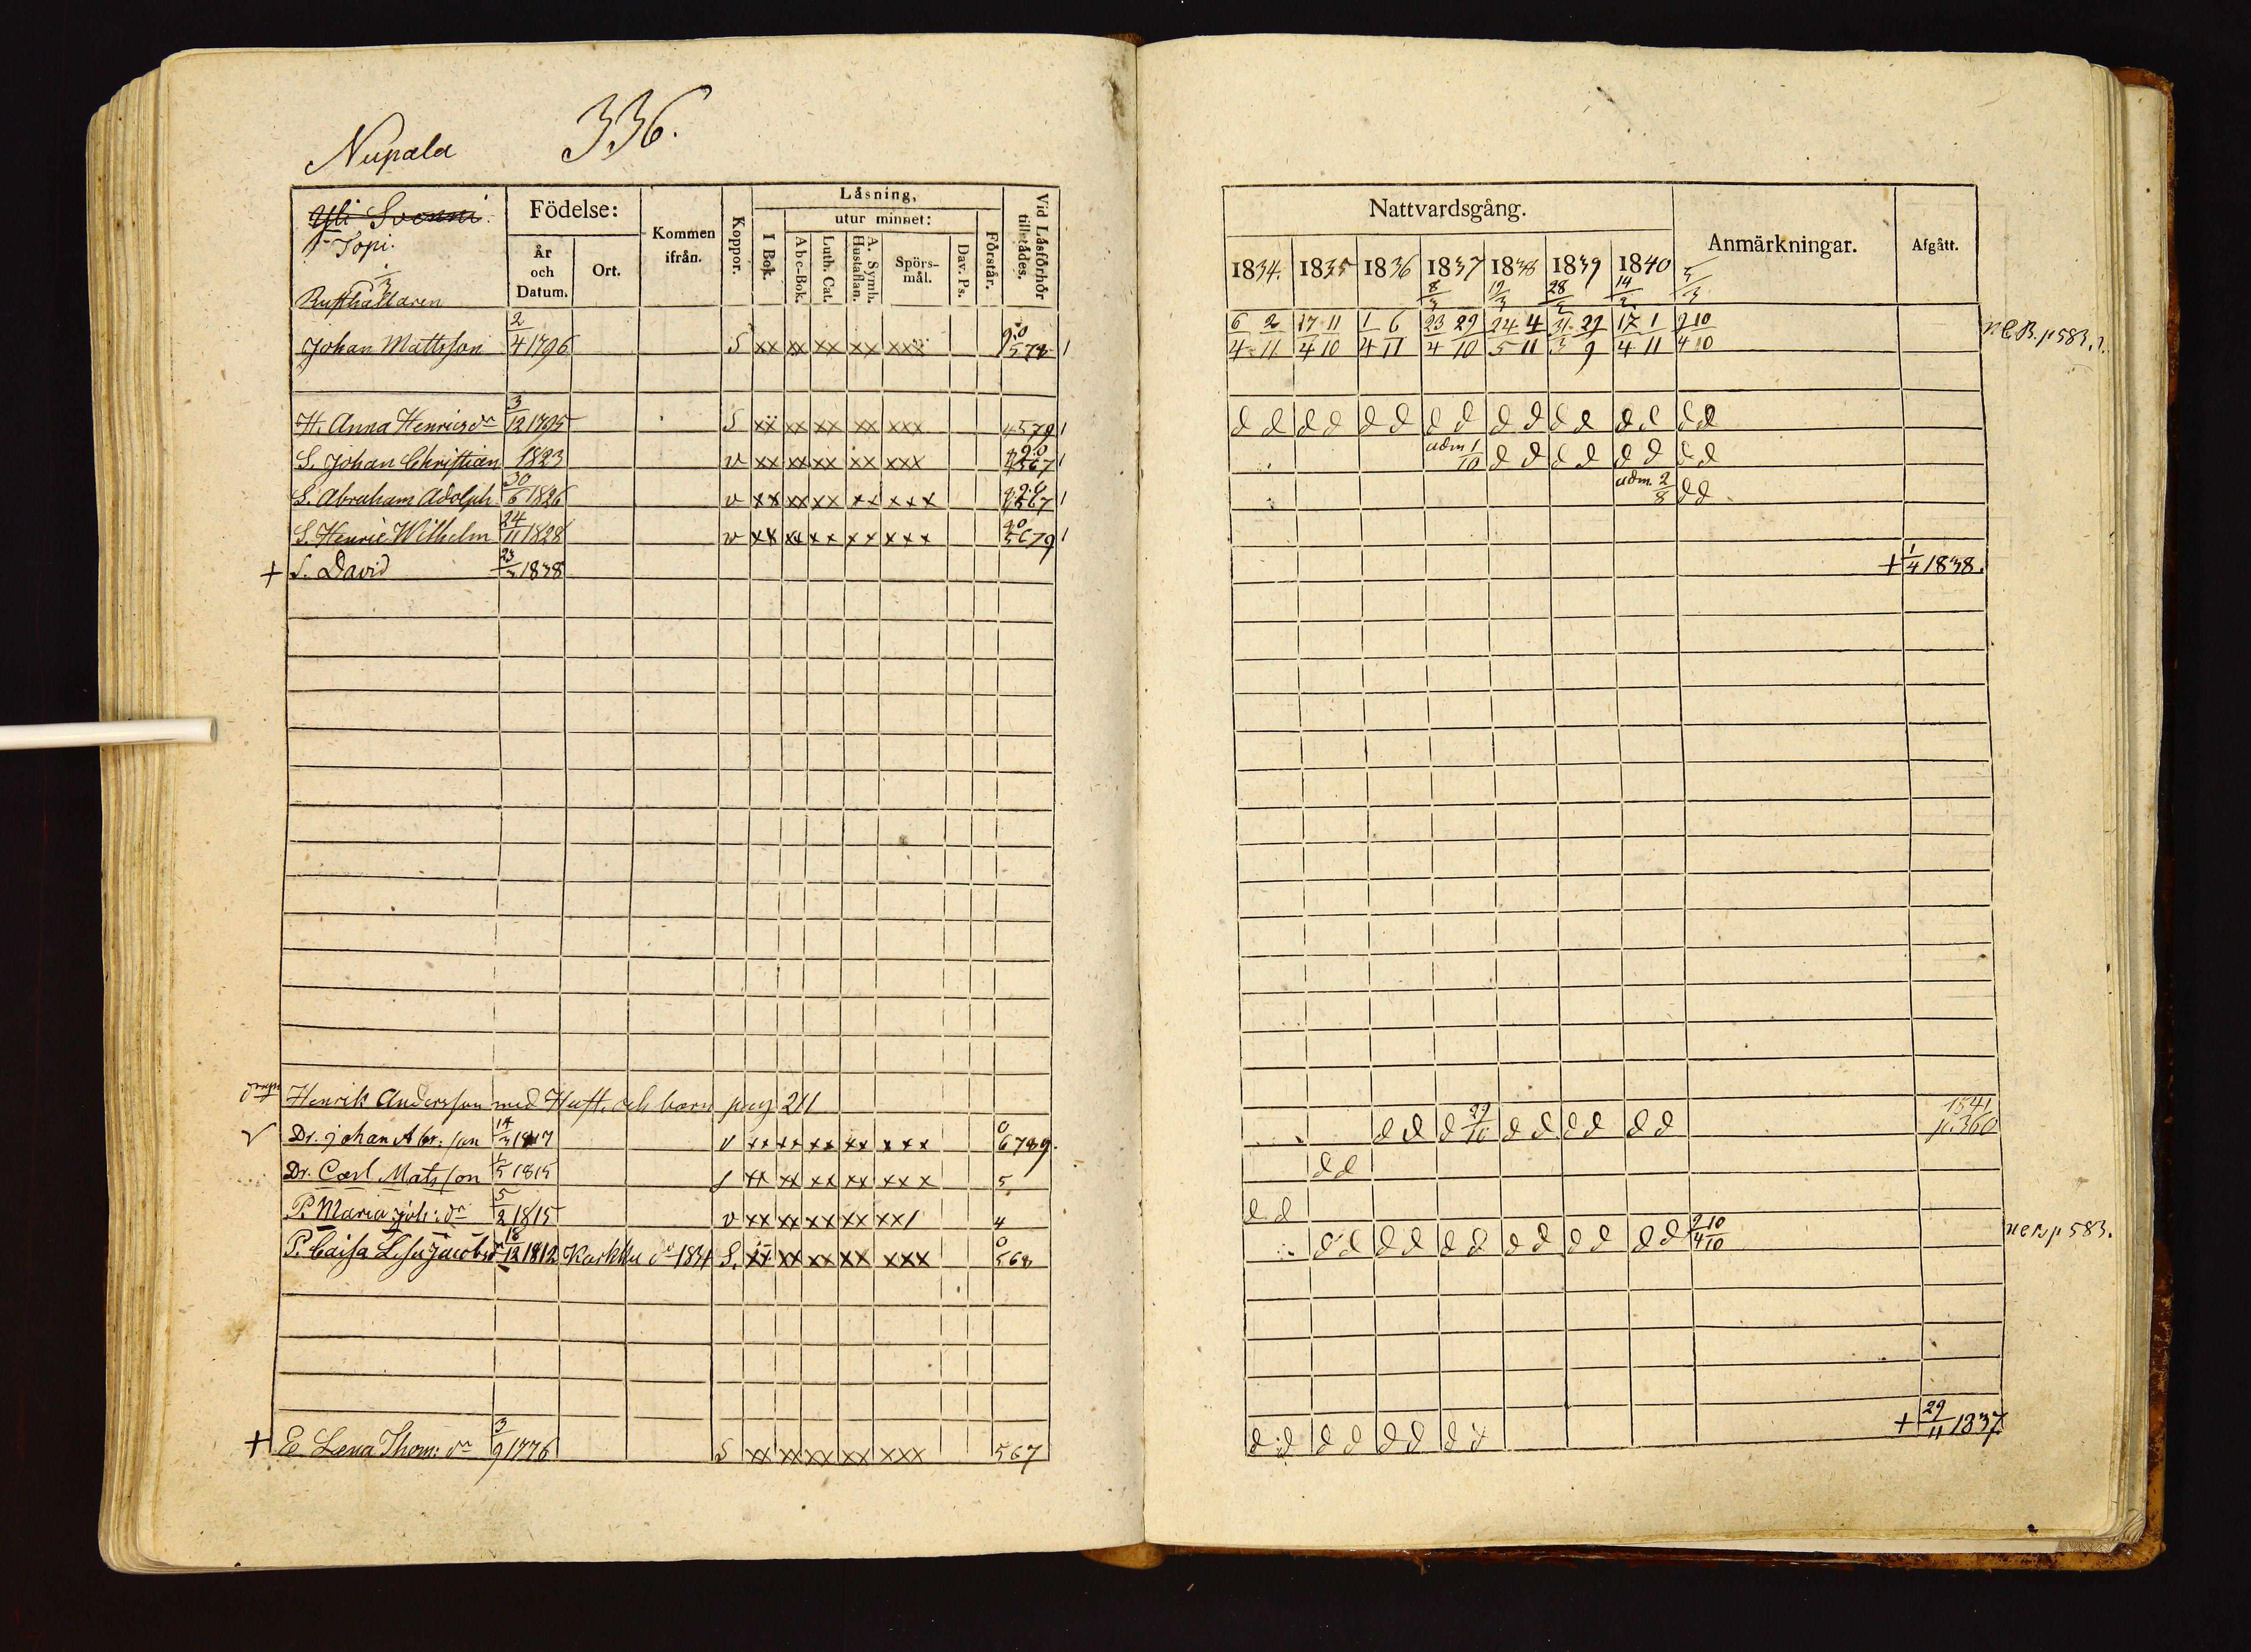 336.
Nupala
Yli Svenni.
Topi.
1/3
Rusthållaren
Födelse:
År och Datum.
Ort.
Kommen ifrån.
Koppor.
Läsning,
I Bok.
utur minnet:
Abc-Bok.
Luth. Cat.
A. Symb. Hustaflan.
Spörs-mål.
Dav. Ps.
Förstår.
Vid Läsförhör tillstädes.
Johan Mattsson 2/4 1796 S xx xx xx xx xxx
H. Anna Henricsdr 3/12 1795 S xx xx xx xx xxx 4579 1
S. Johan Christian 1823 v xx xx xx xx xxx 1
S. Abraham Adolph 30/6 1826 v xx xx xx xx xxx 1
S. Henric Wilhelm 24/11 1828 v xx xx xx xx xxx 5679 1
+ S. David 23/3 1838
Henrik Andersson med Hust. och barn pag 211
v Dr. Johan Abr:son 14/3 1817 v xx xx xx xx xxx 0 6789.
Dr. Carl Matsson 1/5 1815 s xx xx xx xx xxx 5
P. Maria Joh:dr 5/2 1815 v xx xx xx xx xx1 4
P. Caisa Lisa Jacobsdr 18/12 1812 Karkku do 1834 S. xx xx xx xx xxx 0 568
+ E Lena Thom:dr 3/9 1776 S xx xx xx xx xxx 567
Nattvardsgång.
Anmärkningar.
Afgått.
1834. 1835 1836 1837 1838 1839 1840
8/3 19/3 28/2 14/2 5/3
6/4 2/11 17/4 11/10 1/4 6/11 23/4 29/10 24/5 4/11 31/3 29/9 17/4 1/11 9/4 10/10 n C B. p 583.
d d d d d d d d d d d d d d d d
adm 1/10 d d d d d d d d
adm. 2/8 d d
+ 1/4 1838.
d d d 29/10 d d d d d d 1841 p. 360
d d
d d
d d d d d d d d d d d d 9/4 10/10 n C B p 583.
d d d d d d d d + 29/11 1837